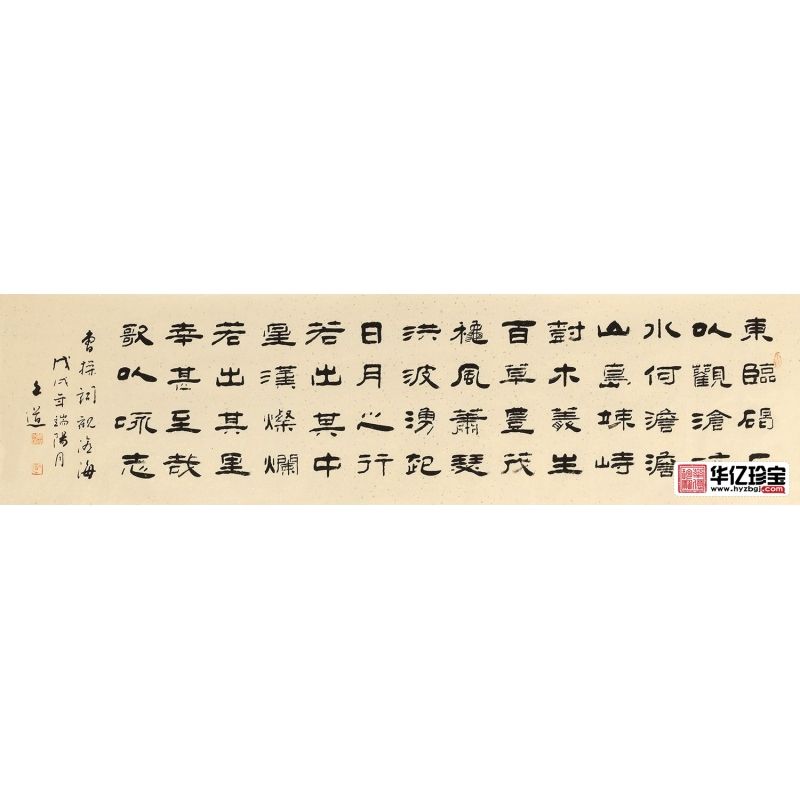 東臨碣石
以觀滄海
水何澹澹
山島竦峙
樹木叢生
百草豐茂
秋風蕭瑟
洪波湧起
日月之行
若出其中
星漢燦爛
若出其里
幸甚至哉
歌以咏志
曹操詞觀滄海
戊戌年端陽月
道
华亿珍宝
www.hyzbgj.com